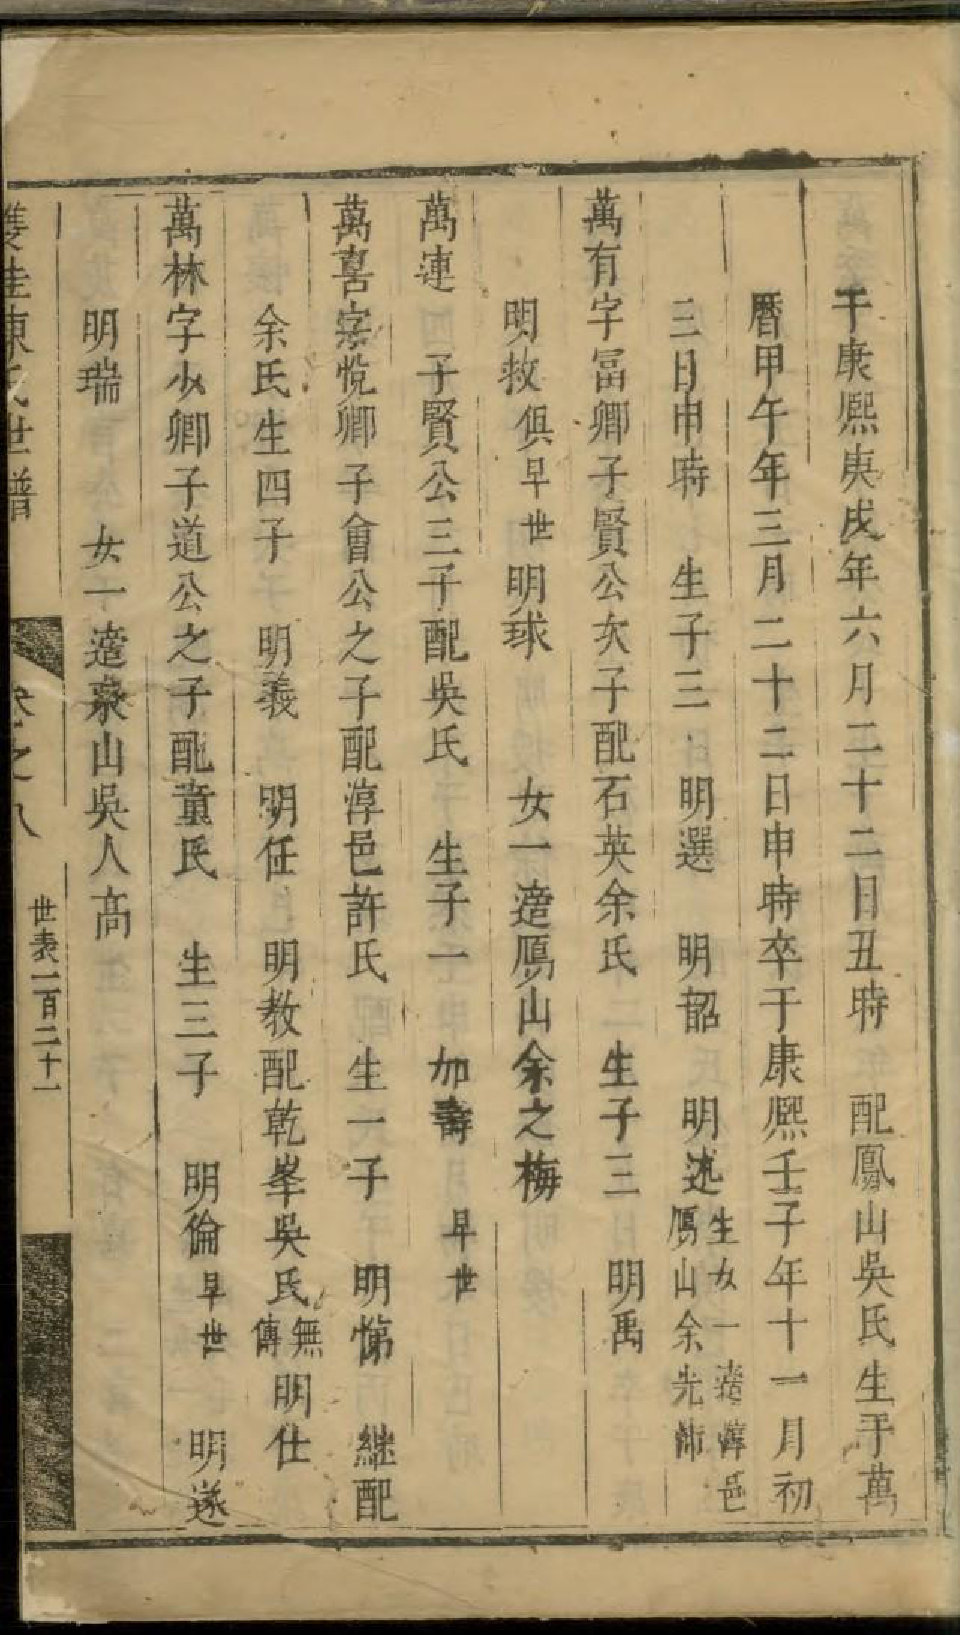 于康熈庚戌年六月二十二日丑時　配鳳山吳氏生于萬
曆甲午年三月二十二日申時卒于康熈壬子年十一月初
三日申時　生子三　明選　明韶　明述 生女一 適淳邑鴈山余先沛
萬有字冨卿子賢公次子配石英余氏　生子三　明禹
明救 俱早世 明球　女一適鴈山余之梅
萬連　子賢公三子配吳氏　生子一　如壽　早世
萬喜字悅卿子會公之子配淳邑許氏　生一子　明悌　継配
余氏生四子　明義　明任　明教配乾峯吳氏 無傳 明仕
萬林字少卿子道公之子配童氏　生三子　明倫 早世　明遂
明瑞　女一適泉山吳人高
雙桂東氏世譜　卷之八　世表一百二十一